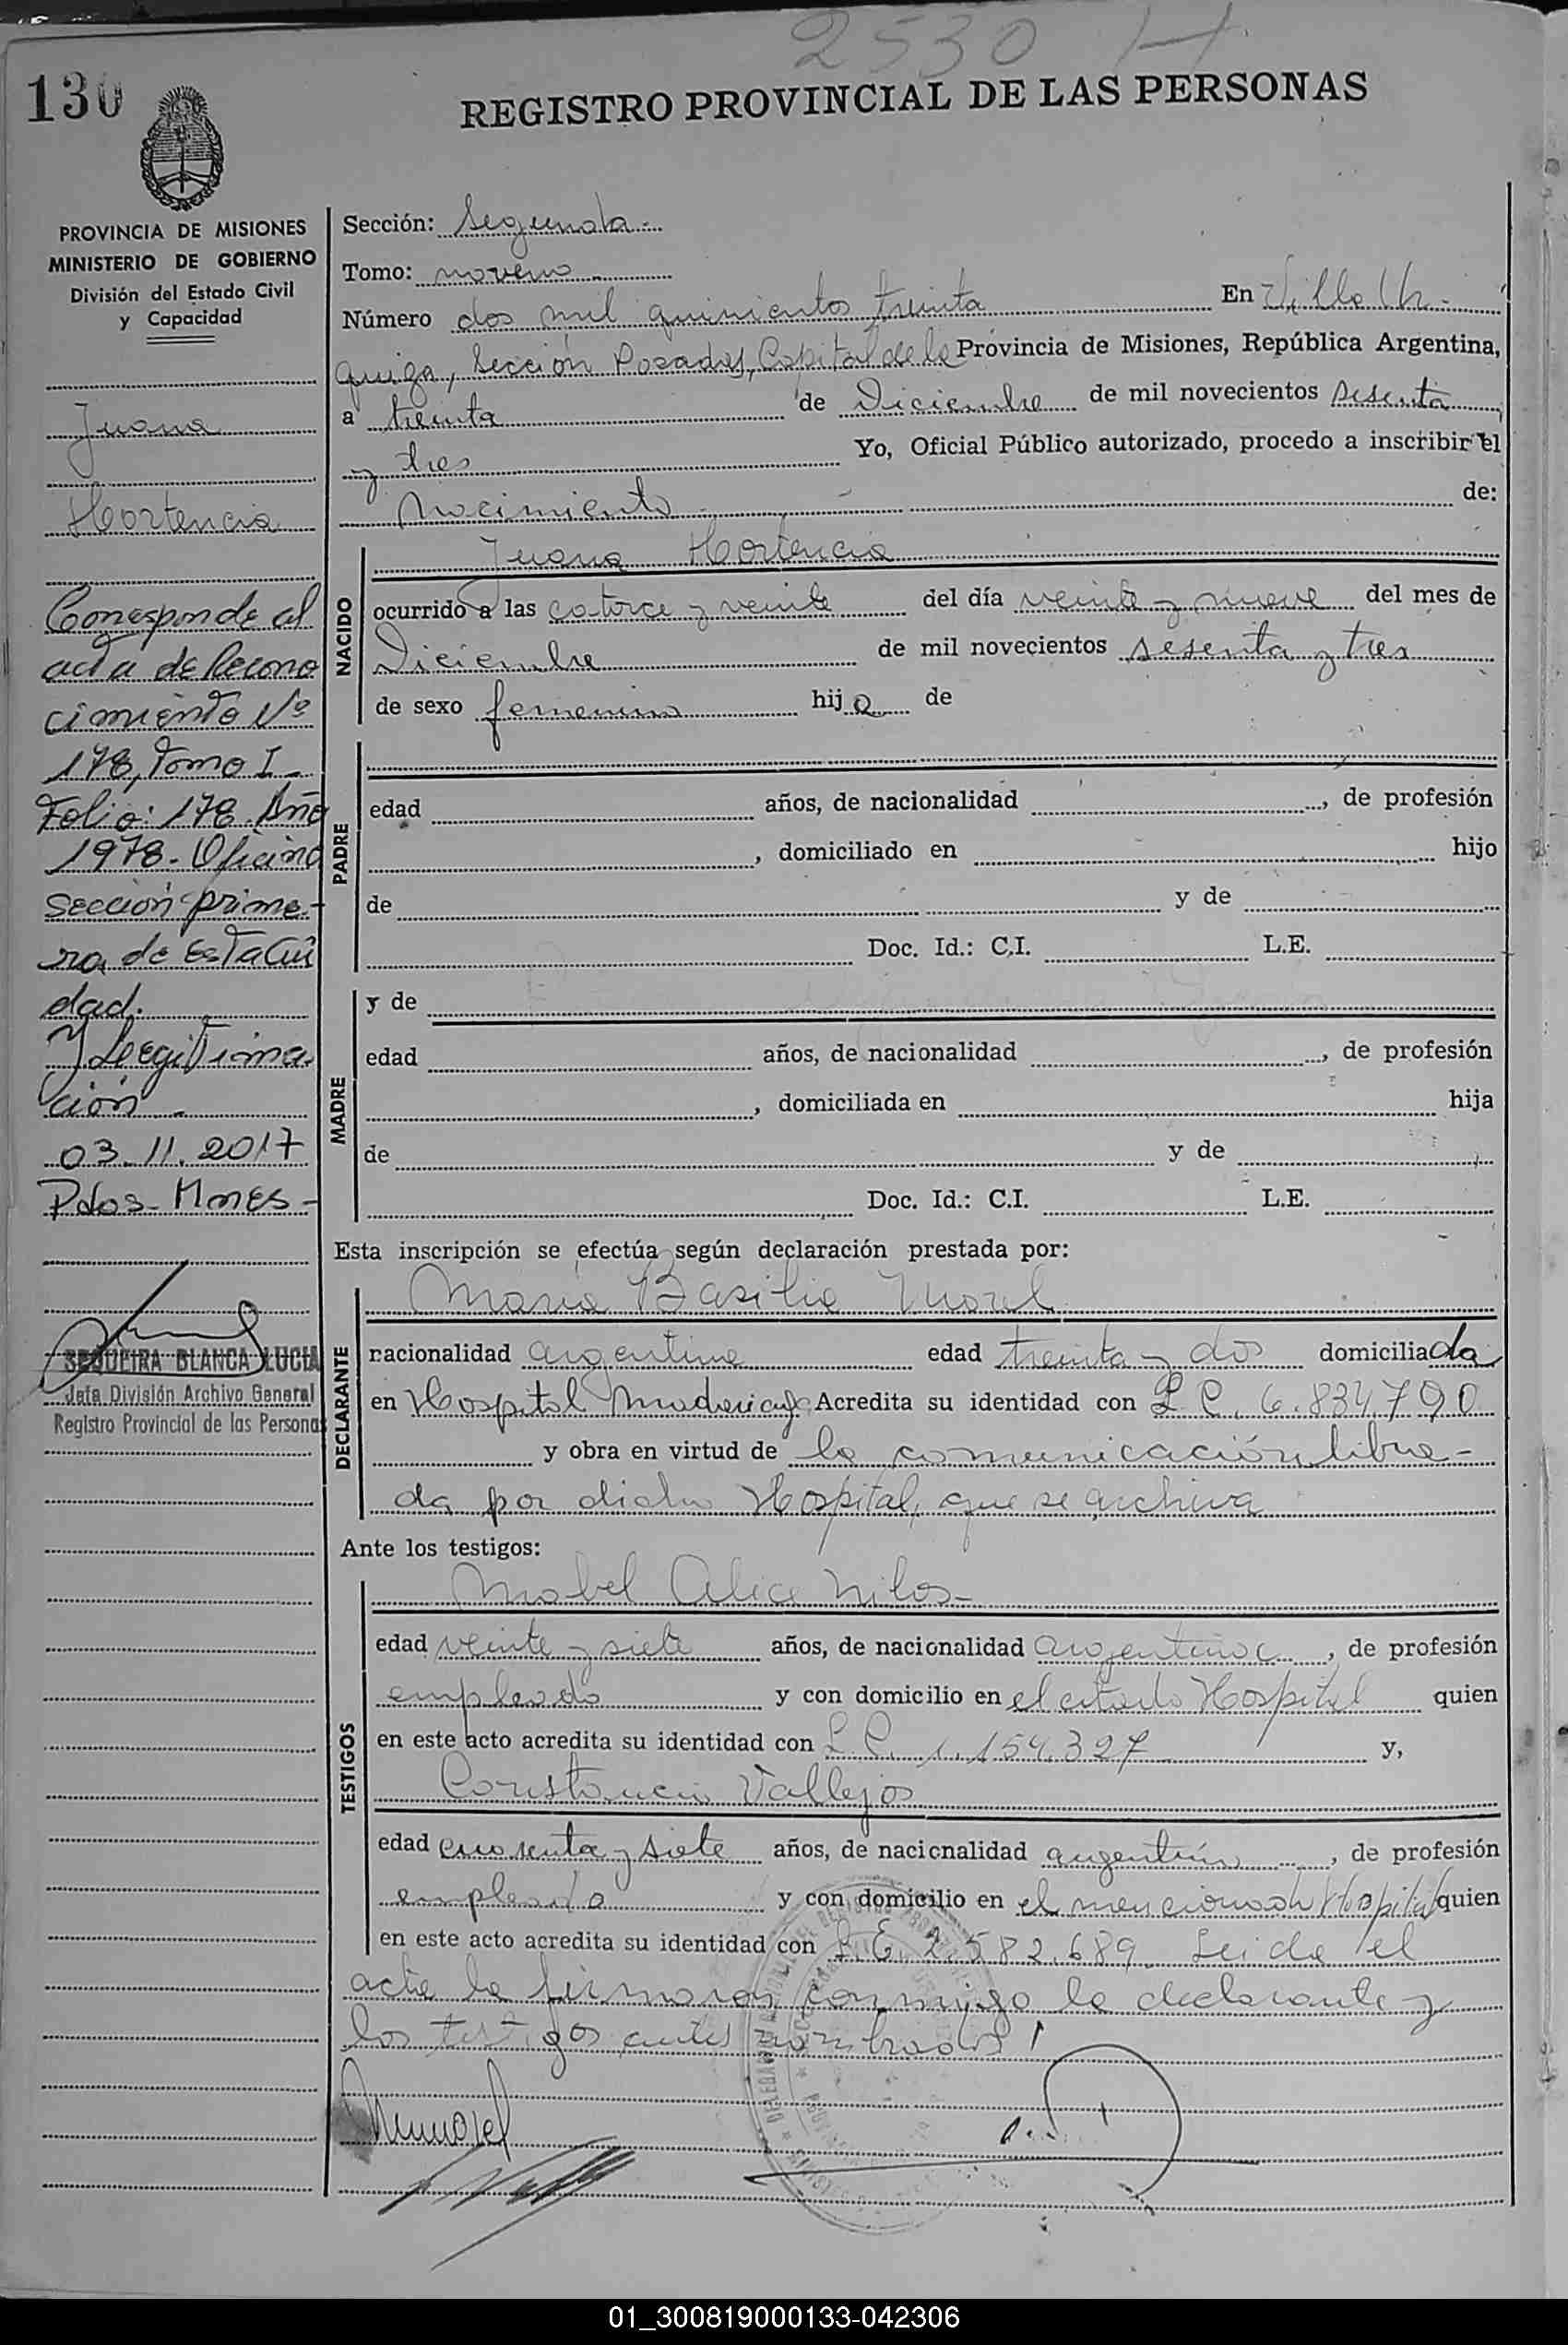 2530 H
130
REGISTRO PROVINCIAL DE LAS PERSONAS
PROVINCIA DE MISIONES
MINISTERIO DE GOBIERNO
División del Estado Civil
y Capacidad
Juana
Hortencia
Corresponde al
acta de Recono
cimiento Nº
178, Tomo I -
Folio: 178. Año
1978 - Oficina
sección prime-
ra, de Esta Ciu
dad.
Y Legitima
ción -
03.11.2017
Pdas - Mnes -
SEQUEIRA BLANCA LUCIA
Jefa División Archivo General
Registro Provincial de las Personas
Sección: Segunda -
Tomo: noveno -
Número dos mil quinientos treinta En Villa Ur-
quiza, Sección Posadas, Capital de la Provincia de Misiones, República Argentina,
a treinta de Diciembre de mil novecientos sesenta
y tres Yo, Oficial Público autorizado, procedo a inscribir el
Nacimiento de:
NACIDO
Juana Hortencia
ocurrido a las catorce y veinte del día veinte y nueve del mes de
Diciembre de mil novecientos sesenta y tres
de sexo femenino hija de
PADRE
edad años, de nacionalidad , de profesión
, domiciliado en hijo
de y de
Doc. Id.: C.I. L.E.
MADRE
y de
edad años, de nacionalidad , de profesión
, domiciliada en hija
de y de
Doc. Id.: C.I. L.E.
Esta inscripción se efectúa según declaración prestada por:
DECLARANTE
María Basilia Morel
nacionalidad argentina edad treinta y dos domiciliada
en Hospital Madariaga Acredita su identidad con L.C. 6.834.790
y obra en virtud de la comunicación libra-
da por dicho Hospital, que se archiva
Ante los testigos:
TESTIGOS
Mabel Alice
edad veinte y siete años, de nacionalidad argentina , de profesión
empleada y con domicilio en el citado Hospital quien
en este acto acredita su identidad con L.C. 1.154.327 y,
Constancio Vallejos
edad cuarenta y siete años, de nacionalidad argentino , de profesión
empleado y con domicilio en el mencionado Hospital quien
en este acto acredita su identidad con L.E. 2.582.689 Leida el
acta la firmaron conmigo la declarante y
los testigos antes nombrados
01_300819000133-042306